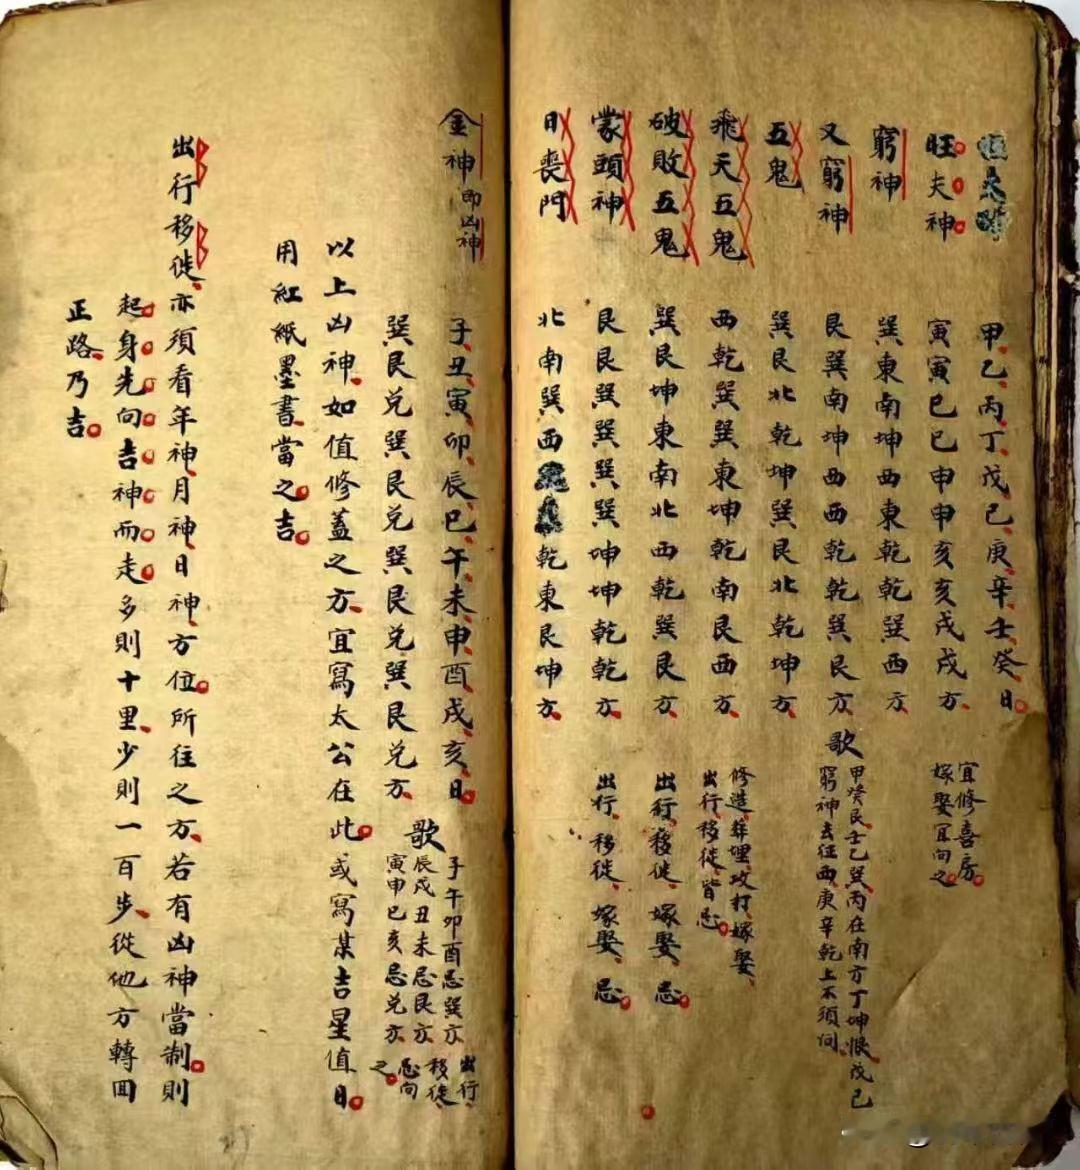 甲乙丙丁戊己庚辛壬癸日
旺夫神 寅寅巳巳申申亥亥戌戌方 宜修喜房
嫁娶宜向之
窮神 巽東南坤西東乾乾巽西方
又窮神 艮巽南坤西西乾乾巽艮方 歌 甲癸艮壬乙巽丙在南方丁坤恨戊己
窮神去征西庚辛乾上不須问
五鬼 巽艮北乾坤巽艮北乾坤方
飛天五鬼 西乾巽巽東坤乾南艮西方 修造葬埋攻打嫁娶
出行移徙皆忌
破敗五鬼 巽艮坤東南北西乾巽艮方 出行移徙嫁娶忌
蒙頭神 艮艮巽巽巽巽坤坤乾乾方 出行移徙嫁娶忌
日喪門 北南巽西乾東艮坤方
金神即凶神 子丑寅卯辰巳午未申酉戌亥日
巽艮兑巽艮兑巽艮兑巽艮兑方 歌 子午卯酉忌巽方
辰戌丑未忌艮方
寅申巳亥忌兑方
出行
移徙
忌向
之
以上凶神如值修蓋之方宜寫太公在此或寫某吉星值日
用紅紙墨書當之吉
出行移徙亦須看年神月神日神方位所往之方若有凶神當制則
起身先向吉神而走多則十里少則一百步從他方轉回
正路乃吉